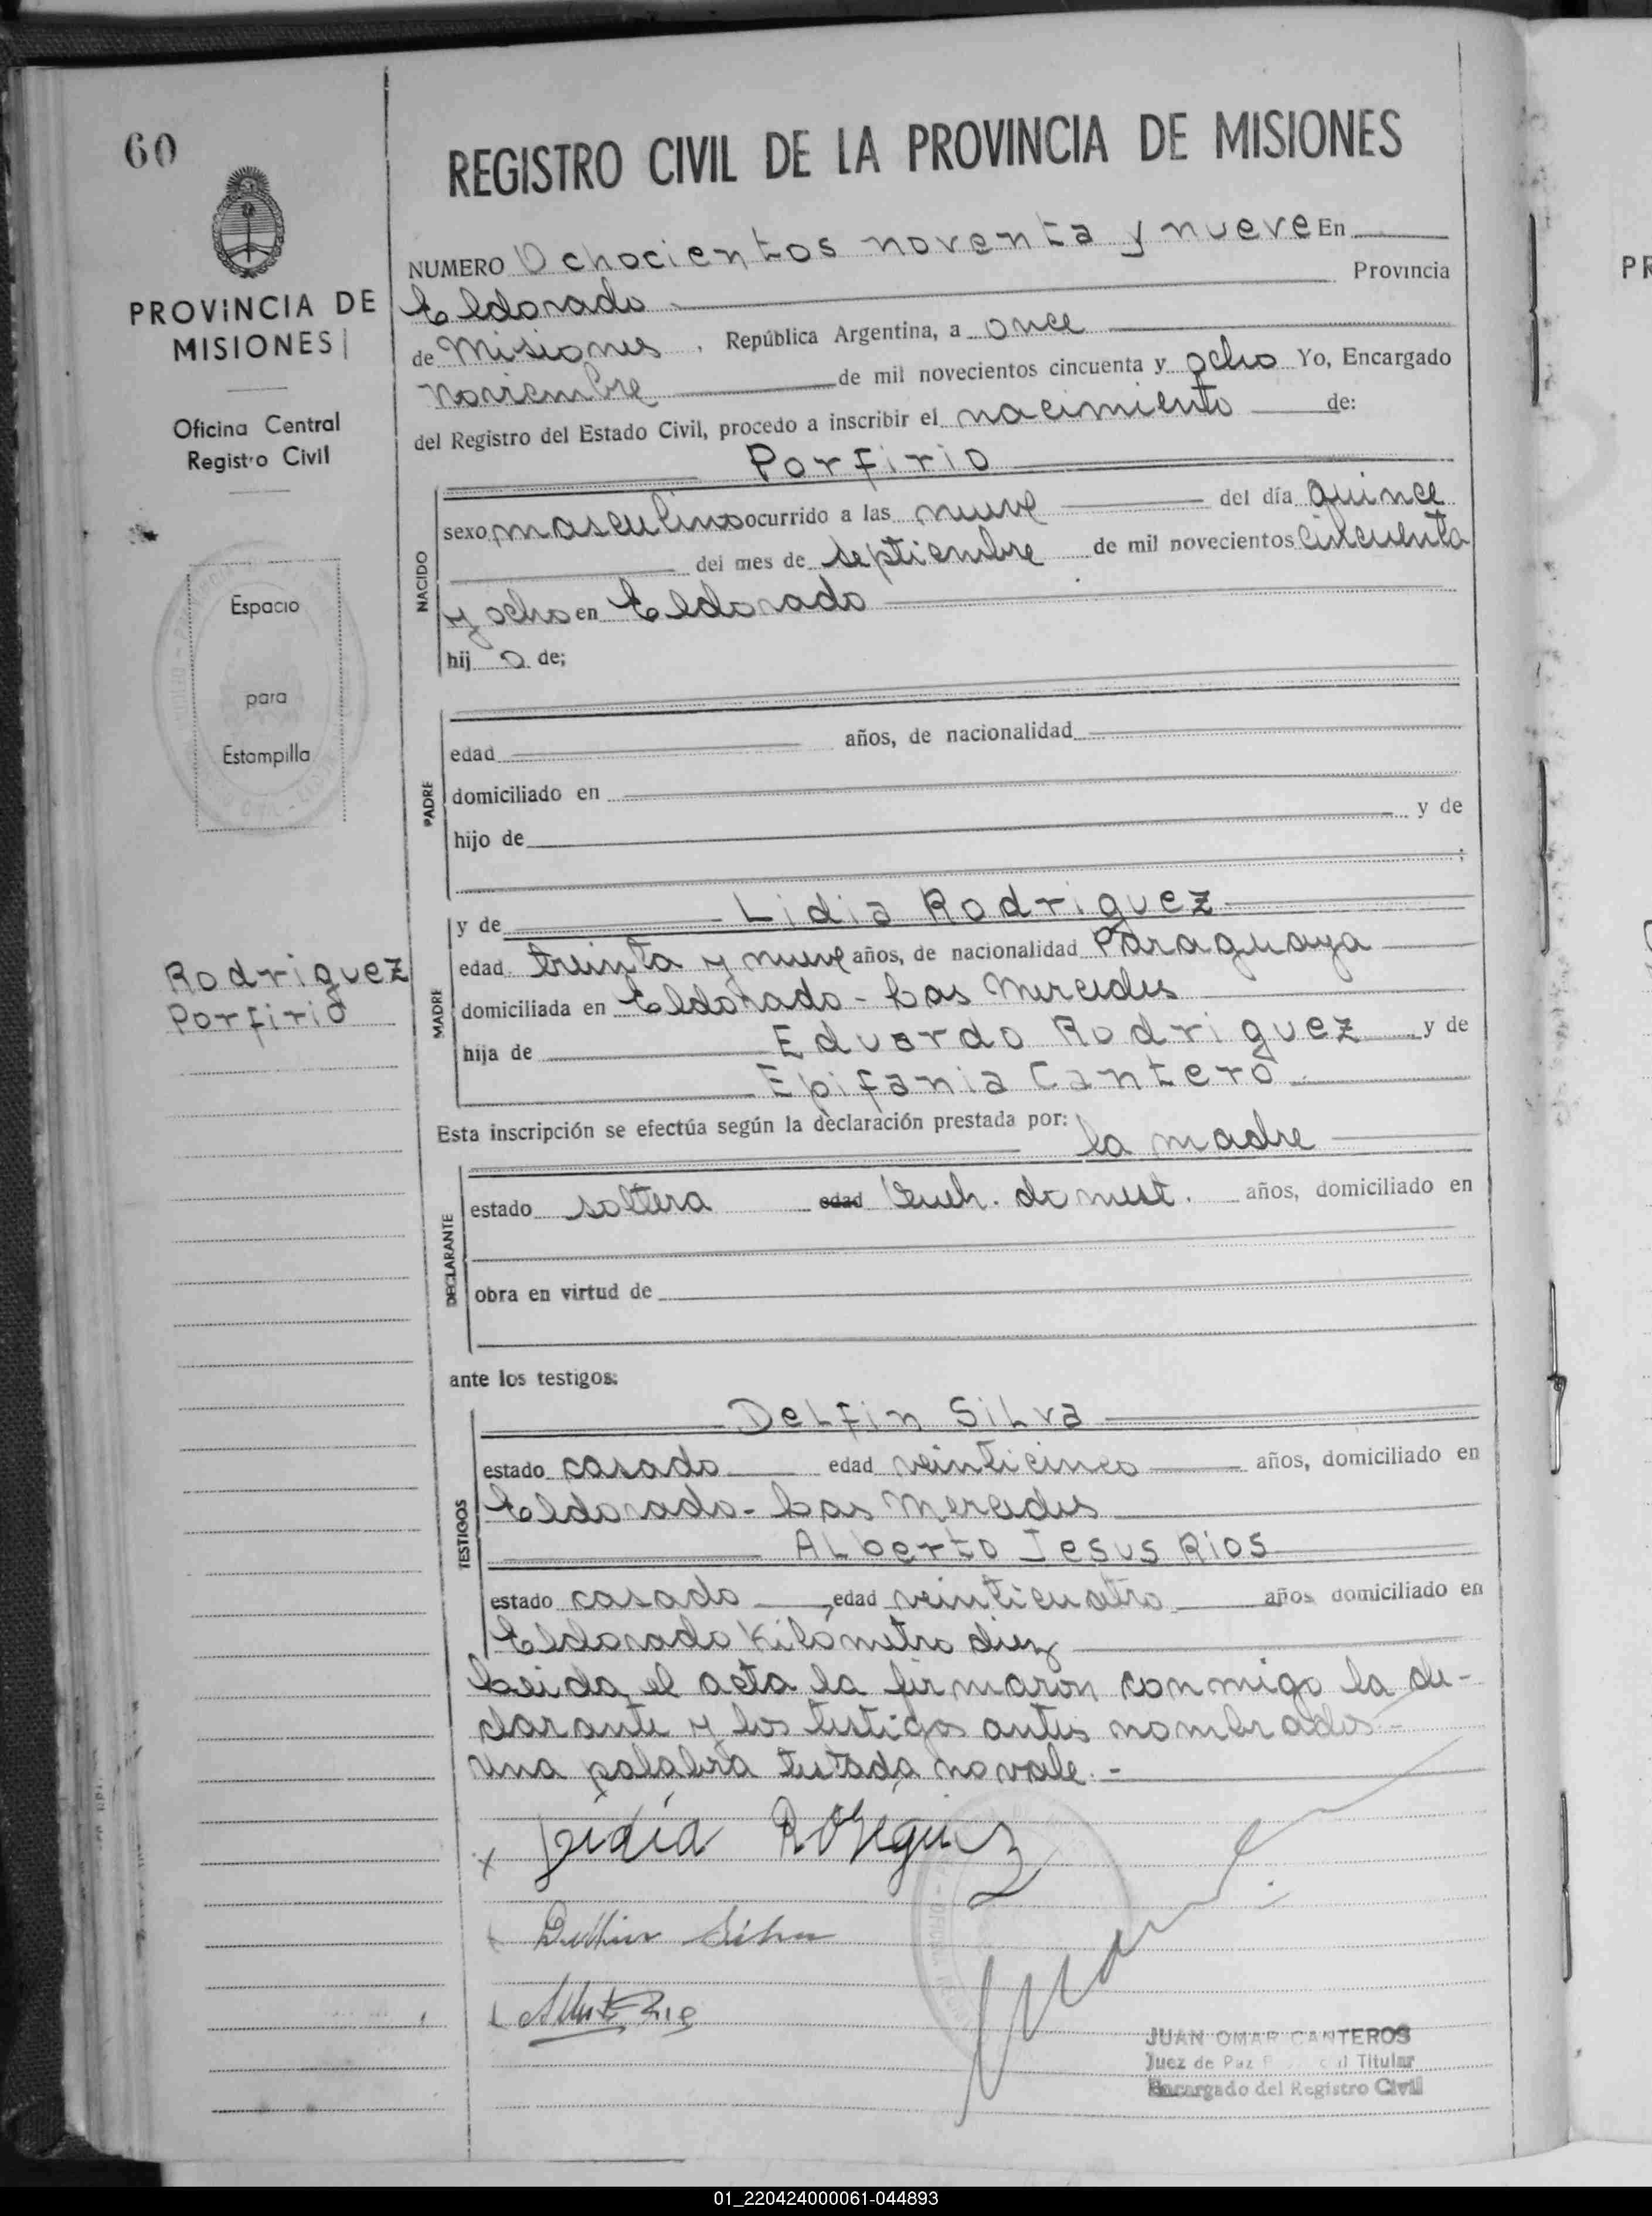 60
REGISTRO CIVIL DE LA PROVINCIA DE MISIONES
PROVINCIA DE
MISIONES
Oficina Central
Registro Civil
Espacio
para
Estampilla
Rodriguez
Porfirio
NUMERO Ochocientos noventa y nueve En
Eldorado Provincia
de Misiones, República Argentina, a once
noviembre de mil novecientos cincuenta y ocho Yo, Encargado
del Registro del Estado Civil, procedo a inscribir el nacimiento de:
Porfirio
NACIDO
sexo masculino ocurrido a las nueve del día quince
del mes de septiembre de mil novecientos cincuenta
y ocho en Eldorado
hij o de;
PADRE
edad años, de nacionalidad
domiciliado en
hijo de y de
;
MADRE
y de Lidia Rodriguez
edad treinta y nueve años, de nacionalidad Paraguaya
domiciliada en Eldorado - Las Mercedes
hija de Eduardo Rodriguez y de
Epifania Cantero
Esta inscripción se efectúa según la declaración prestada por: la madre
DECLARANTE
estado soltera edad domest. años, domiciliado en
obra en virtud de
ante los testigos:
TESTIGOS
Delfin Silva
estado casado edad veinticinco años, domiciliado en
Eldorado - Las Mercedes
Alberto Jesus Rios
estado casado, edad veinticuatro años domiciliado en
Eldorado Kilómetro diez
Leida el acta la firmaron conmigo la de-
clarante y los testigos antes nombrados -
Una palabra testada no vale. -
x Lidia Rodriguez
Delfin Silva
JUAN OMAR CANTEROS
Juez de Paz Titular
Encargado del Registro Civil
01_220424000061-044893